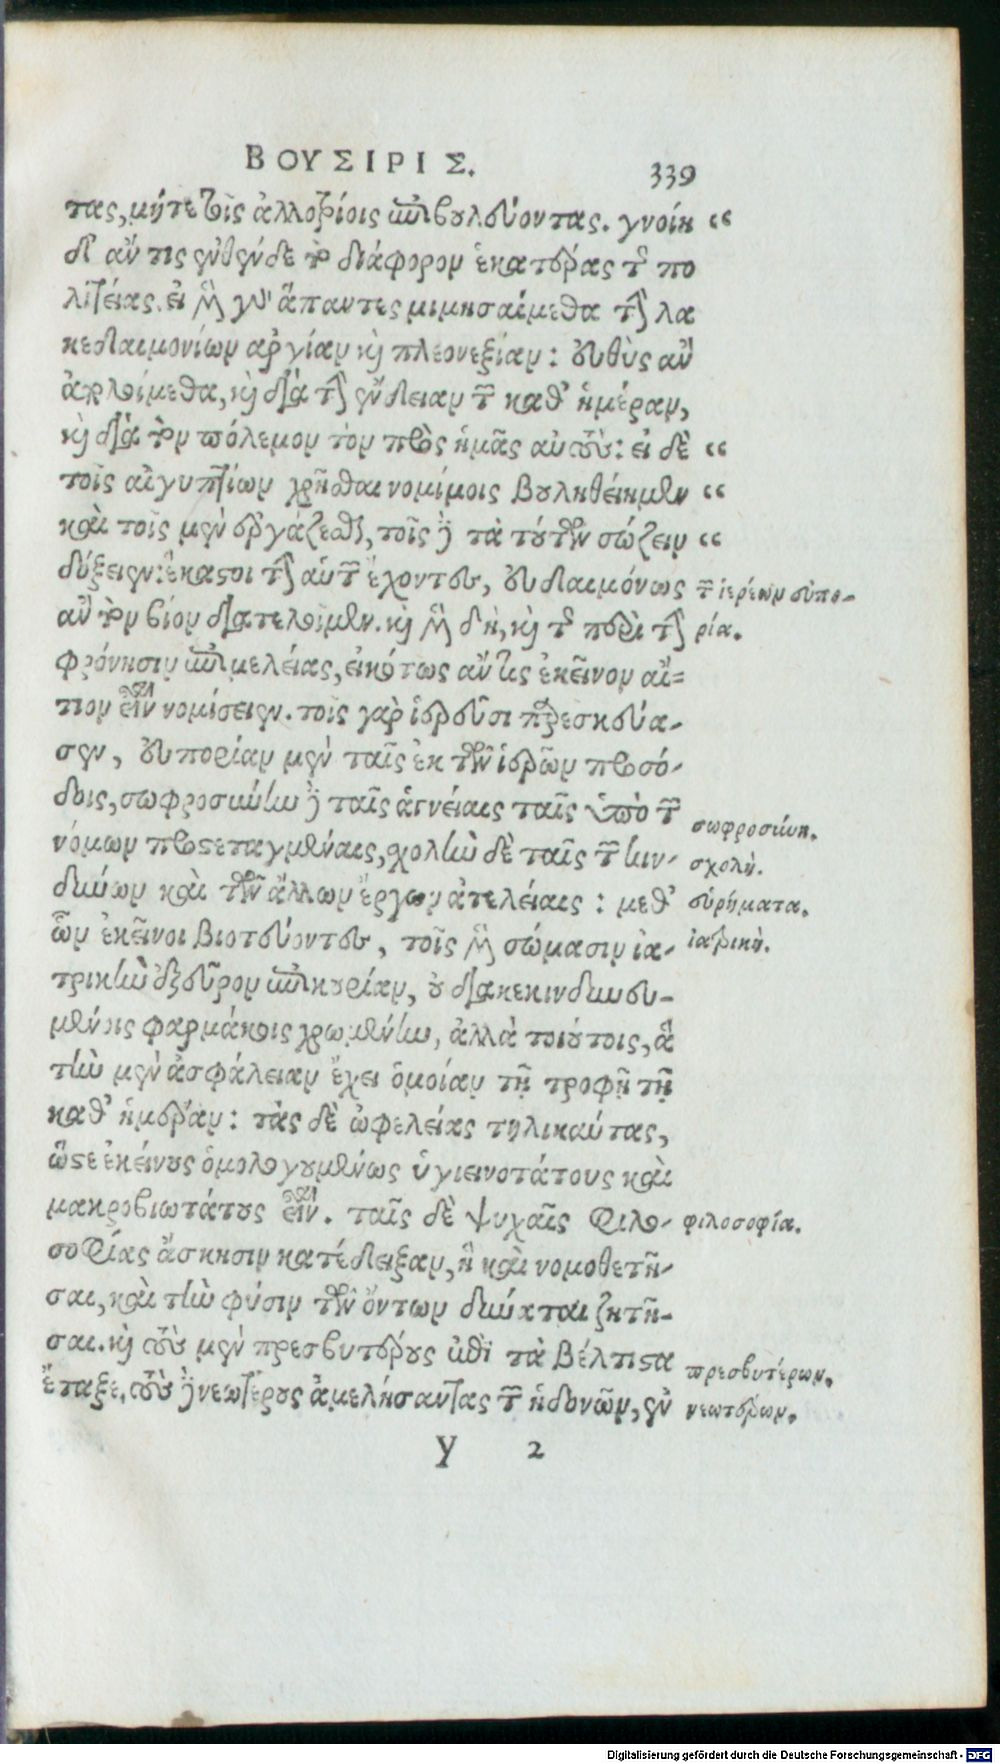 ΒΟΥΣΙΡΙΣ. 339
τας, μήτε τοῖς ἀλλοτρίοις ἐπιβουλεύοντας. γνοίη “
δ' ἄν τις ἐνθένδε τὸ διάφορον ἑκατέρας τῆς πο
λιτείας. εἰ μὲν γὰρ ἅπαντες μιμησαίμεθα τὴν λα
κεδαιμονίων ἀργίαν καὶ πλεονεξίαν: εὐθὺς ἂν
ἀπολοίμεθα, καὶ διὰ τὴν ἔνδειαν τῶν καθ' ἡμέραν,
καὶ διὰ τὸν πόλεμον τὸν πρὸς ἡμᾶς αὐτούς: εἰ δὲ “
τοῖς αἰγυπτίων χρῆσθαι νομίμοις βουληθείημεν “
καὶ τοῖς μὲν ἐργάζεσθαι, τοῖς δὲ τὰ τούτων σώζειν “
δόξειεν: ἕκαστοι τὴν αὑτῶν ἔχοντες, εὐδαιμόνως
ἂν τὸν βίον διατελοῖμεν. καὶ μὲν δὴ, καὶ τῆς περὶ τὴν
φρόνησιν ἐπιμελείας, εἰκότως ἄν τις ἐκεῖνον αἴ=
τιον εἶναι νομίσειεν. τοῖς γὰρ ἱερεῦσι παρεσκεύα-
σεν, εὐπορίαν μὲν ταῖς ἐκ τῶν ἱερῶν προσό-
δοις, σωφροσύνην δὲ ταῖς ἁγνείαις ταῖς ὑπὸ τῶν
νόμων προστεταγμέναις, σχολὴν δὲ ταῖς τῶν κιν-
δύνων καὶ τῶν ἄλλων ἔργων ἀτελείαις: μεθ'
ὧν ἐκεῖνοι βιοτεύοντες, τοῖς μὲν σώμασιν ἰα-
τρικὴν ἐξεῦρον ἐπικουρίαν, οὐ διακεκινδυνευ-
μένοις φαρμάκοις χρωμένην, ἀλλὰ τοιούτοις, ἃ
τὴν μὲν ἀσφάλειαν ἔχει ὁμοίαν τῇ τροφῇ τῇ
καθ' ἡμέραν: τὰς δὲ ὠφελείας τηλικαύτας,
ὥστε ἐκείνους ὁμολογουμένως ὑγιεινοτάτους καὶ
μακροβιωτάτους εἶναι. ταῖς δὲ ψυχαῖς φιλο-
σοφίας ἄσκησιν κατέδειξαν, ἣ καὶ νομοθετῆ-
σαι, καὶ τὴν φύσιν τῶν ὄντων δύναται ζητῆ-
σαι. καὶ τοὺς μὲν πρεσβυτέρους ἐπὶ τὰ βέλτιστα
ἔταξε, τοὺς δὲ νεωτέρους ἀμελήσαντας τῶν ἡδονῶν, ἐν
Y 2
τῶν ἱερέων εὐπο-
ρία.
σωφροσύνη.
σχολή.
εὑρήματα.
ἰατρική.
φιλοσοφία.
πρεσβυτέρων.
νεωτέρων.
Digitalisierung gefördert durch die Deutsche Forschungsgemeinschaft - DFG